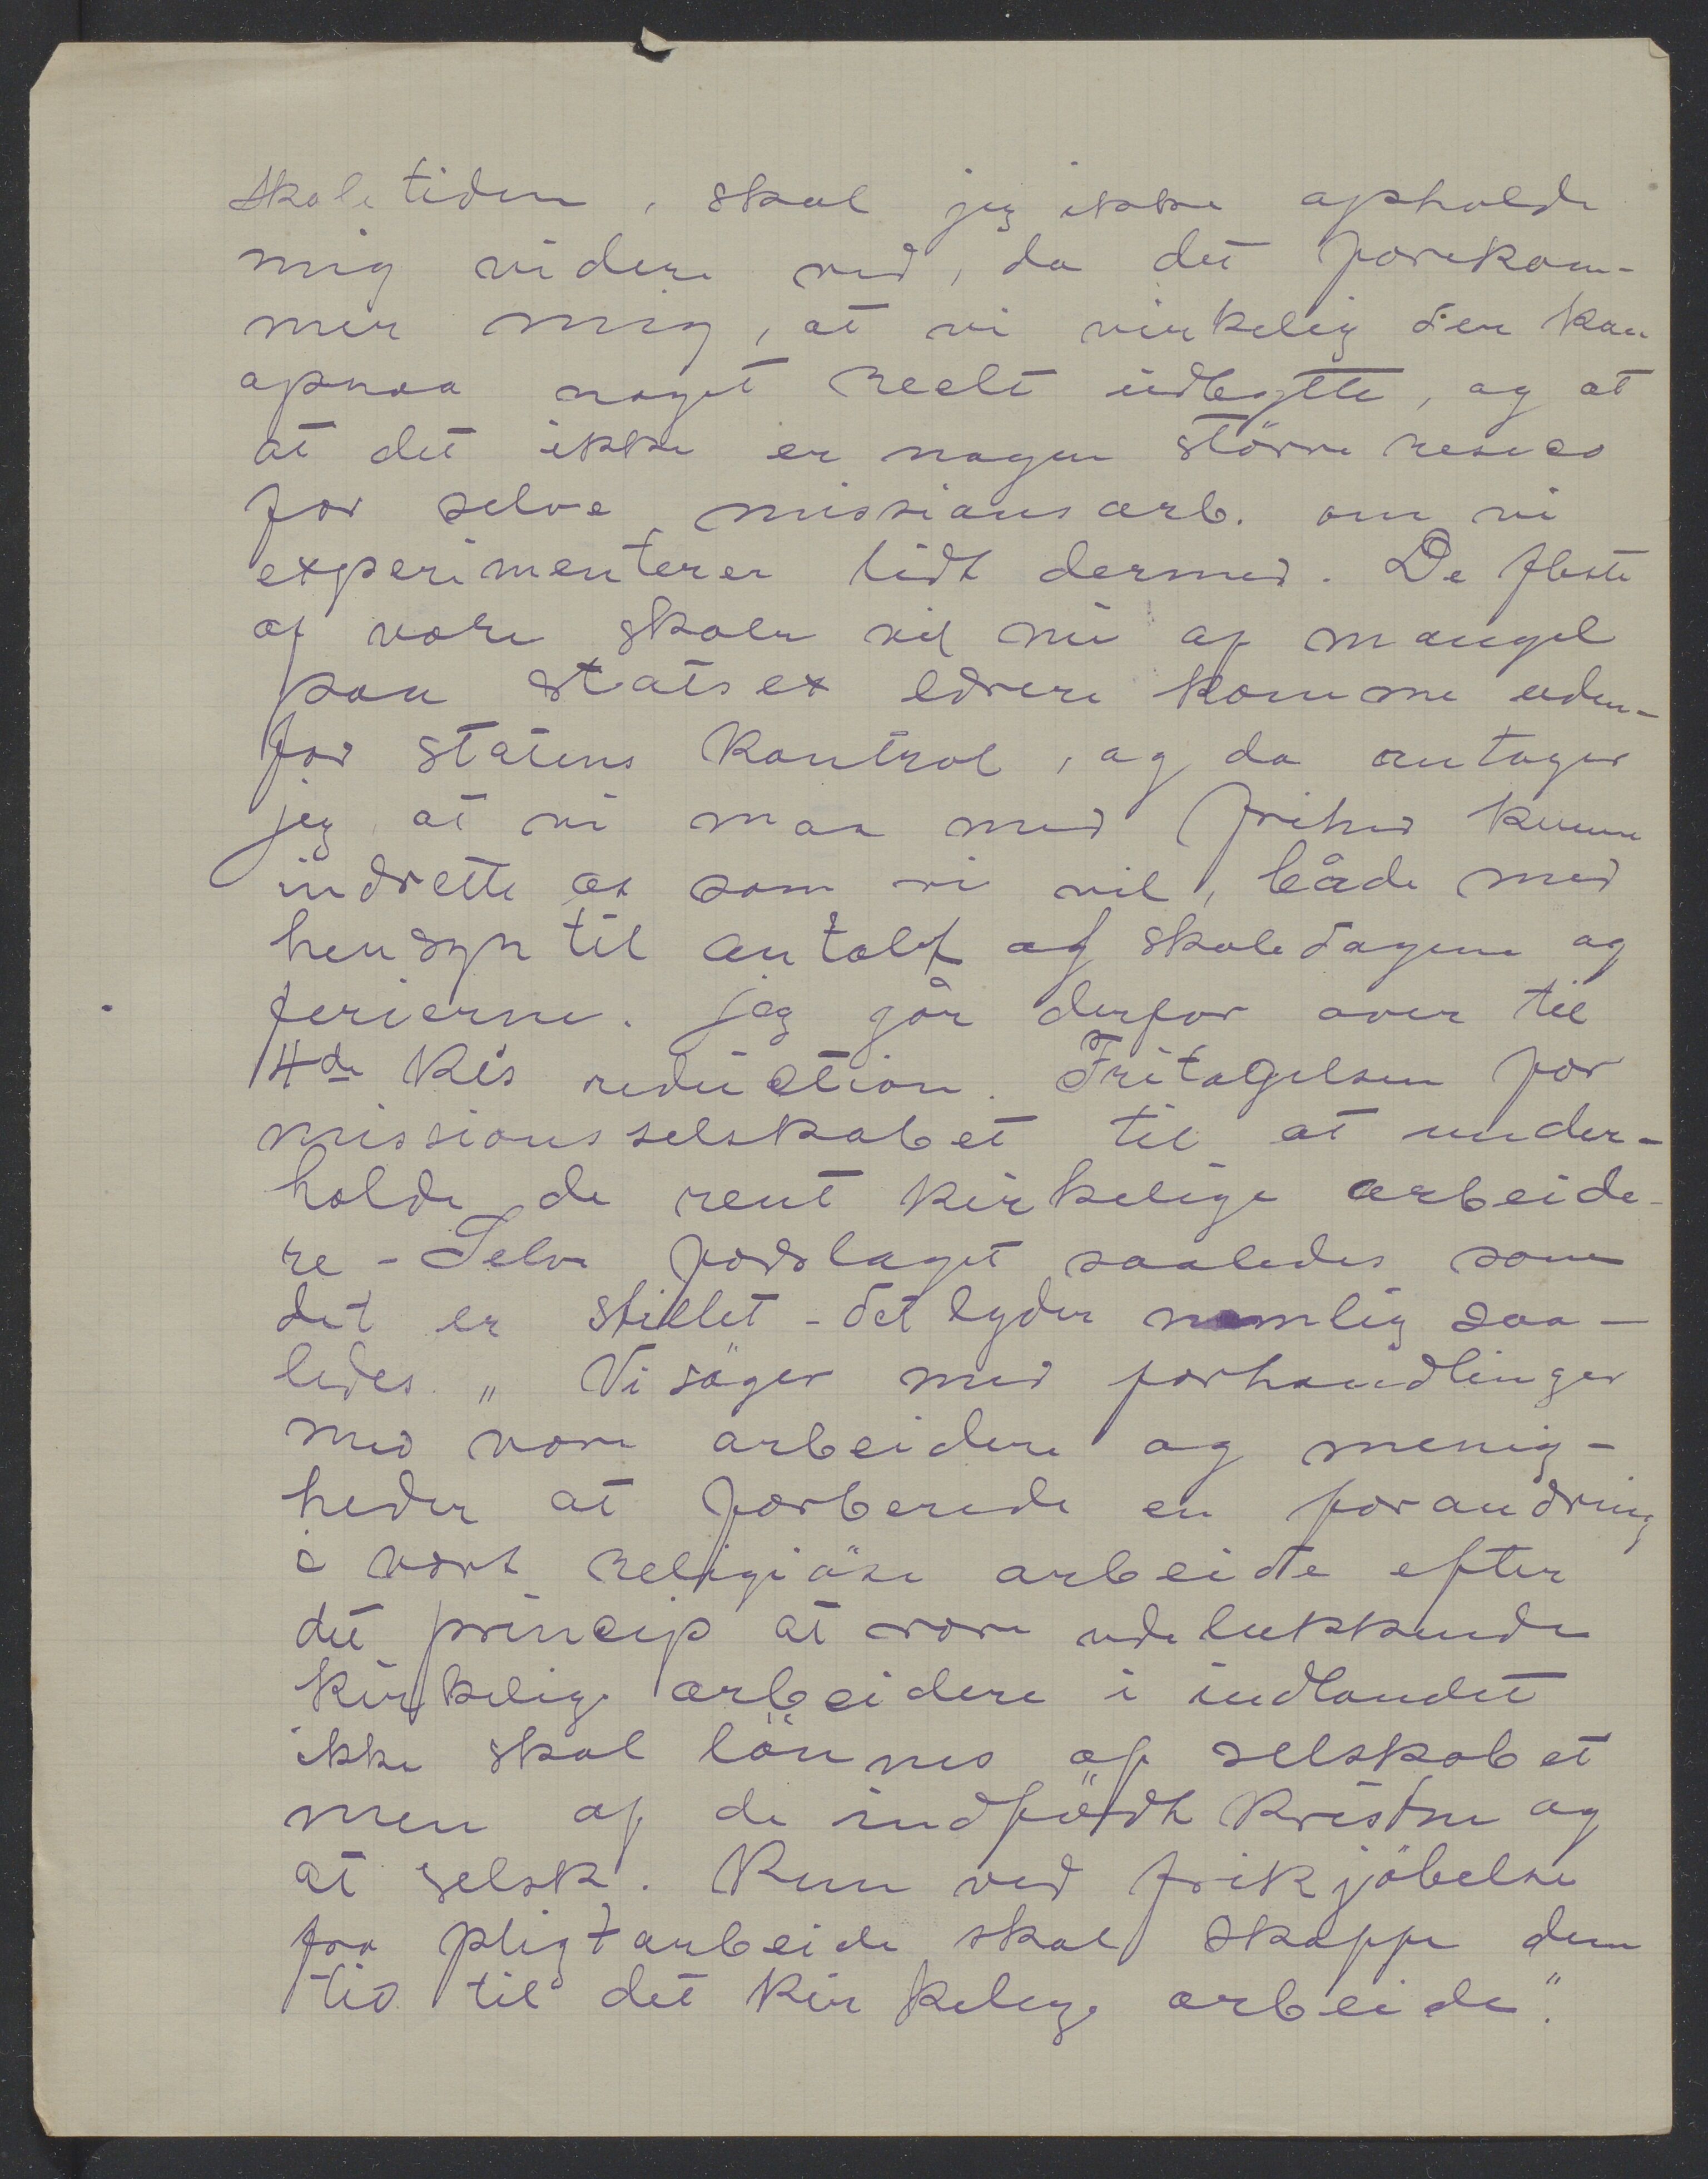 skoletiden, skal jeg ikke opholde
mig videre ved, da det forekom-
mer mig, at vi virkelig der kan
opnaa noget reelt udbytte, og at
at det ikke er nogen större
for selve missionsarb. om vi
experimenterer lidt dermed. De fleste
af vore skoler vil nu af mangel
paa statsex lærere komme uden-
for statens kontrol, og da antager
jeg at vi maa med frihed kunne
indrette os som vi vil, både med
hensyn til antalf af skoledagene og
ferierne. jeg går derfor over til
4de Kls reduction. Fritagelsen for
missionsselskabet til at under-
holde de rent kirkelige arbeide-
re - Selve forslaget saaledes som
det er stillet - det lyder nemlig saa-
ledes „ Vi söger med forhandlinger
med vore arbeidere og menig-
heder at forberede en forandring
i vort religiöse arbeide efter
det princip at vore udelukkende
kirkelige arbeidere i indlandet
ikke skal lönnes af selskabet
men af de indfödte kristne og
at selsk. Kun ved frikjöbelse
fra pligtarbeide skal skaffe dem
tid til det kirkelige arbeide".